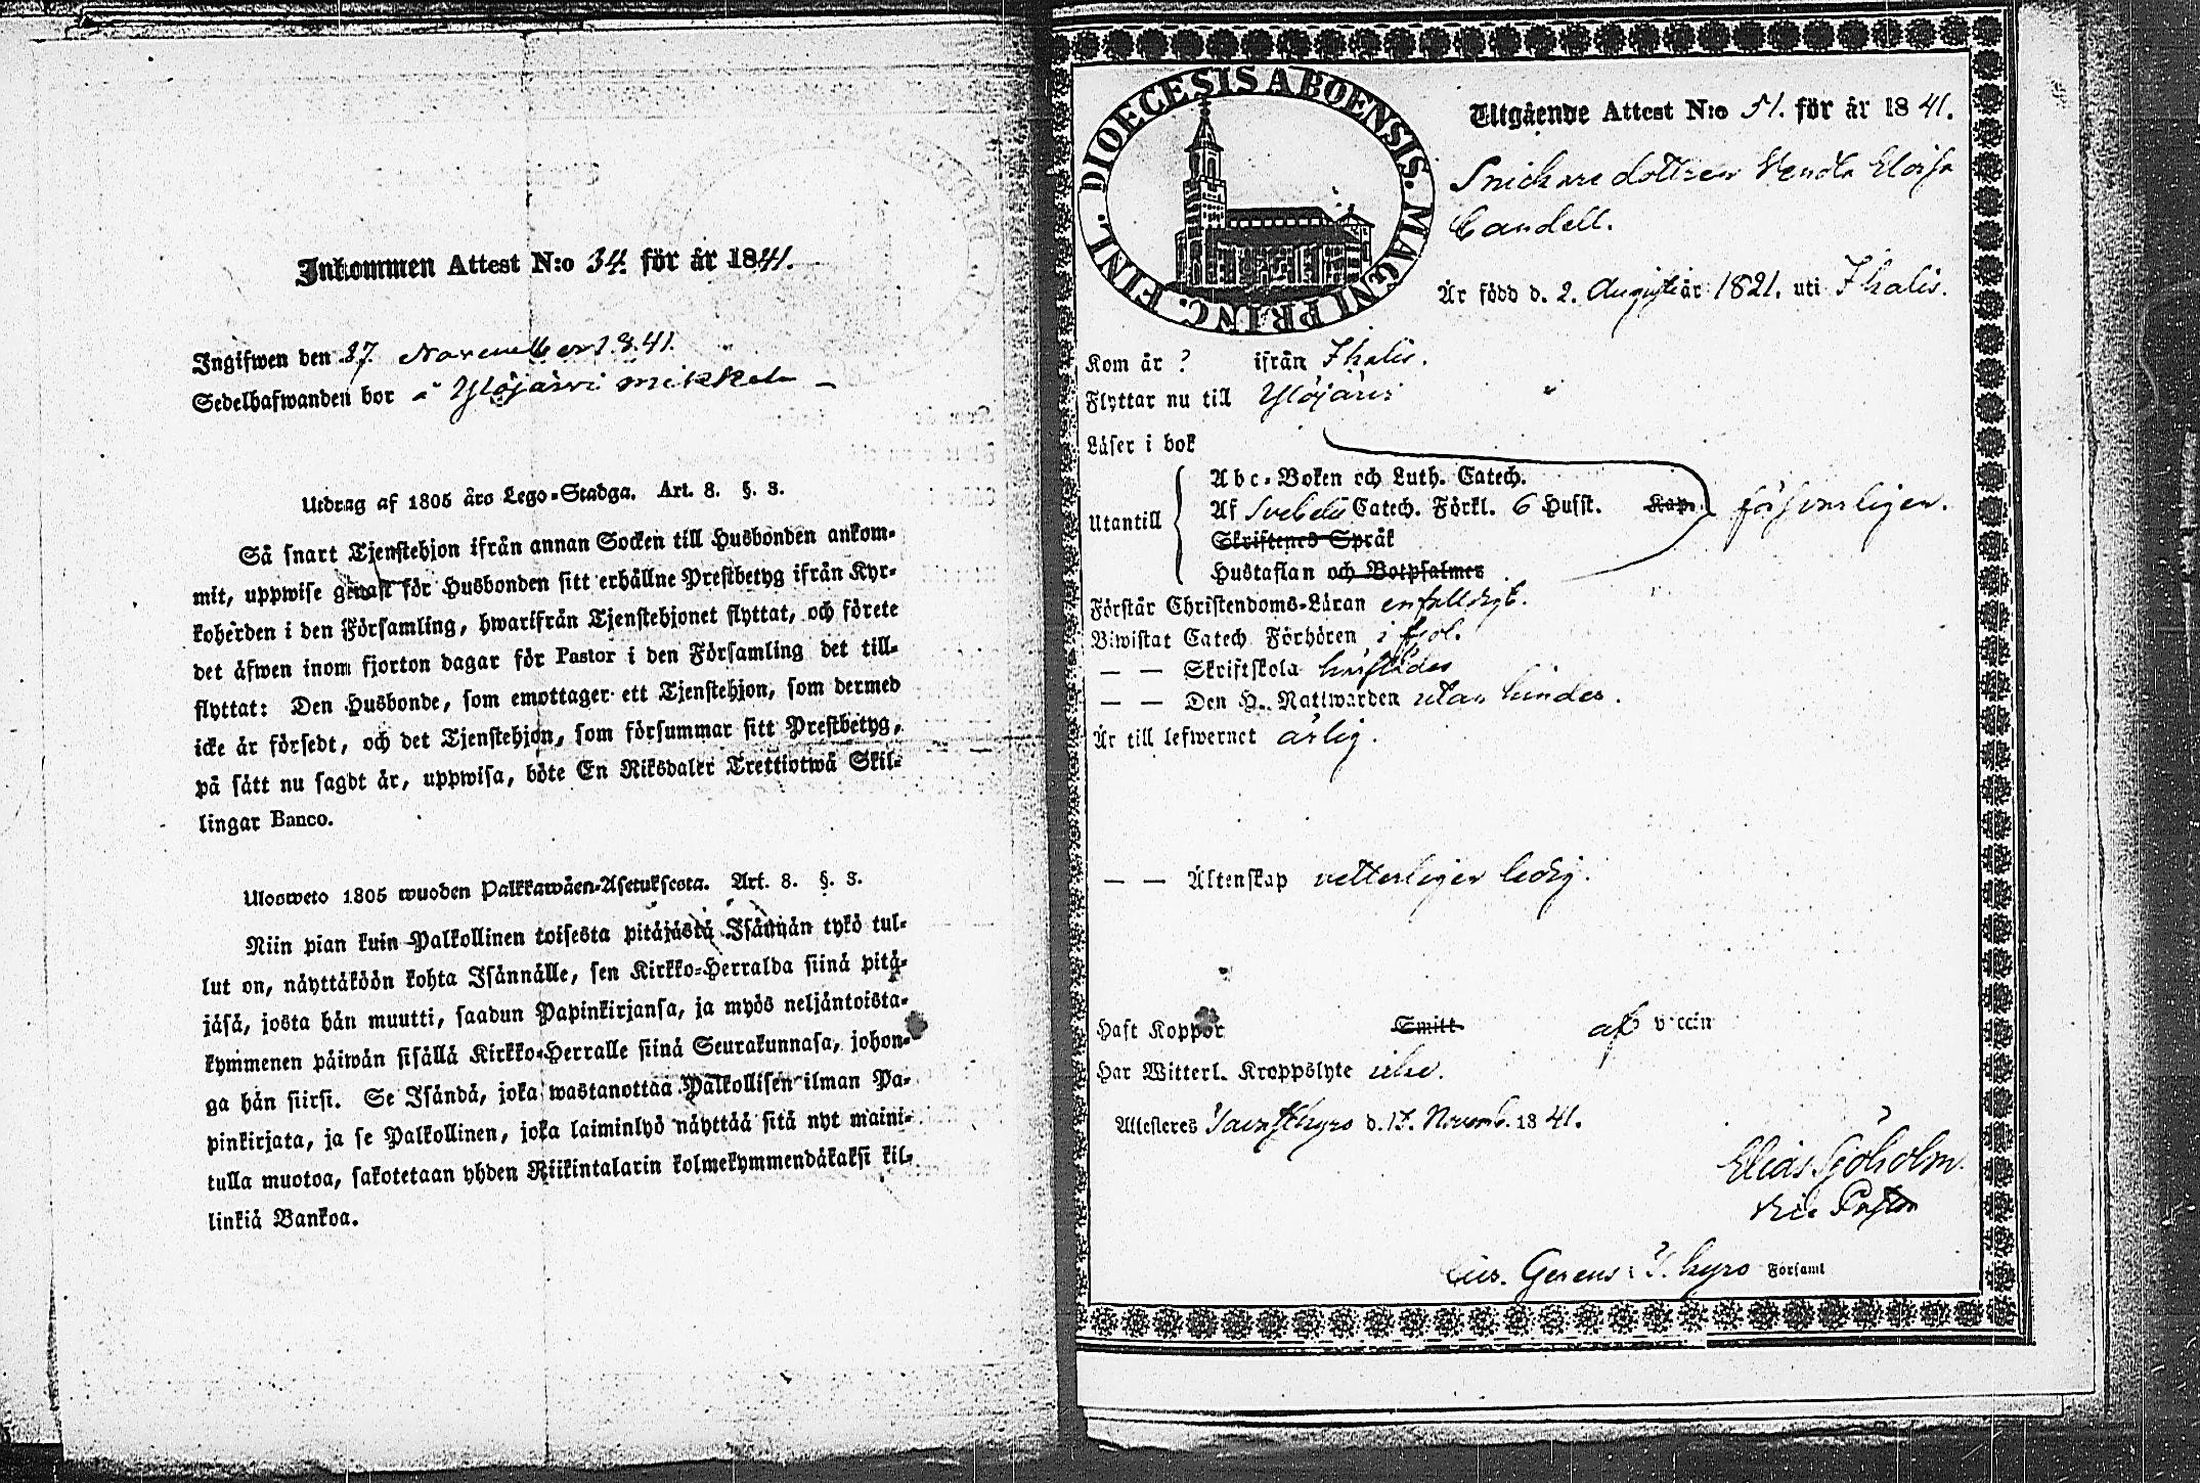 Inkommen Attest N:o 34. för år 1841.
Ingifwen den 27. November 1841.
Sedelhafwanden bor i Ylöjärvi Mikkola
Utdrag af 1805 års Lego-Stadga. Art. 8. §. 3.
Så snart Tjenstehjon ifrån annan Socken till Husbonden ankom-
mit, uppwise genast för Husbonden sitt erhållne Prestbetyg ifrån Kyr-
koherden i den Församling, hwarifrån Tjenstehjonet flyttat, och förete
det äfwen inom fjorton dagar för Pastor i den Församling det till-
flyttat: Den Husbonde, som emottager ett Tjenstehjon, som dermed
icke är försedt, och det Tjenstehjon, som försummar sitt Prestbetyg,
på sätt nu sagdt är, uppwisa, böte En Riksdaler Trettiotwå Skil-
lingar Banco.
Ulosweto 1805 wuoden Palkkawäen-Asetuksesta. Art. 8. §. 3.
Niin pian kuin Palkollinen toisesta pitäjästä Isännän tykö tul-
lut on, näyttäköön kohta Isännälle, sen Kirkko-Herralda siinä pitä-
jäsä, josta hän muutti, saadun Papinkirjansa, ja myös neljäntoista-
kymmenen päiwän sisällä Kirkko-Herralle siinä Seurakunnasa, johon-
ga hän siirsi. Se Isändä, joka wastanottaa Palkollisen ilman Pa-
pinkirjata, ja se Palkollinen, joka laiminlyö näyttää sitä nyt maini-
tulla muotoa, sakotetaan yhden Riikintalarin kolmekymmendäkaksi kil-
linkiä Bankoa.
DIOECESIS ABOENSIS. MAGNI PRINC. FINL.
Utgående Attest N:o 51. för år 1841.
Snickare dottren Venda Eloisa
Candell.
Är född d. 2. Augusti år 1821. uti Ikalis.
Kom år ? ifrån Ikalis.
Flyttar nu till Ylöjärvi
Läser i bok
Abc-Boken och Luth. Catech.
Utantill Af Svebelii Catech. Förkl. 6 Husst. Kap. försvarligen.
Skriftenes Språk
Hustaflan och Botpsalmer
Förstår Christendoms-Läran enfalldigt.
Biwistat Catech Förhören i fjol.
— — Skriftskola härstädes
— — Den H. Nattwarden utan hinder.
Är till lefwernet ärlig.
— — Äktenskap vetterligen ledig.
Haft Koppor Smitt af vaccin
Har Witterl. Kroppslyte icke.
Attesteres Tavastkyro d. 17. Novemb. 1841.
Elias Sjöholm.
Vice Pastor
Cur. Gerens i T. kyro Församl